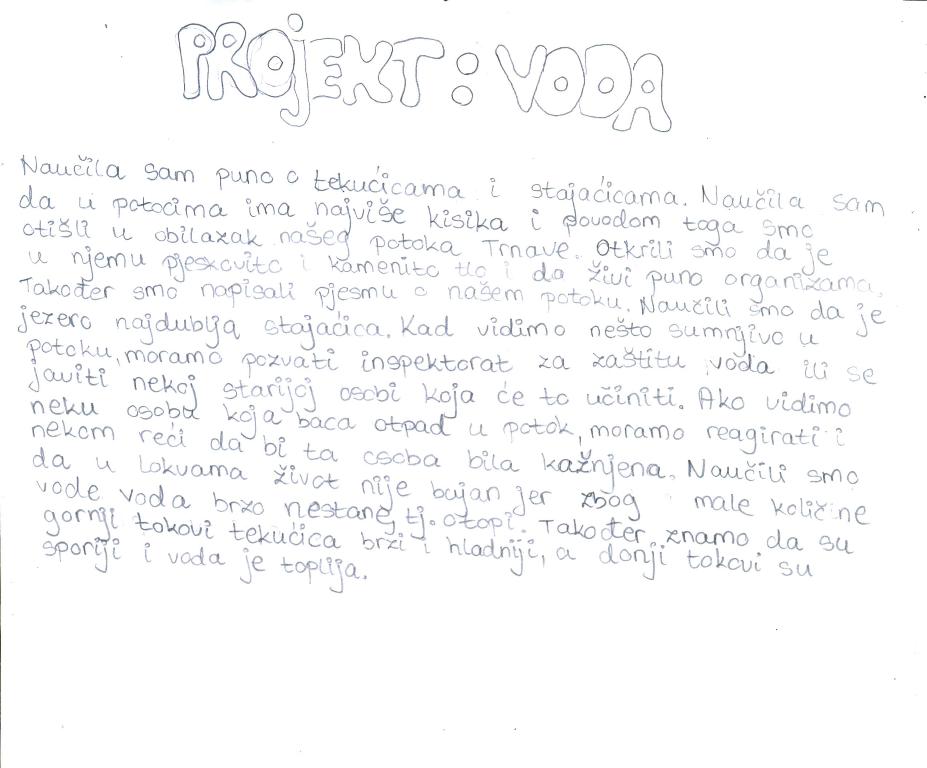 PROJEKT: VODA
Naučila sam puno o tekućicama i stajaćicama. Naučila sam
da u potocima ima najviše kisika i povodom toga smo
otišli u obilazak našeg potoka Trnave. Otkrili smo da je
u njemu pjeskovito i kamenito tlo i da živi puno organizama.
Također smo napisali pjesmu o našem potoku. Naučili smo da je
jezero najdublja stajaćica. Kad vidimo nešto sumnjivo u
potoku, moramo pozvati inspektorat za zaštitu voda ili se
javiti nekoj starijoj osobi koja će to učiniti. Ako vidimo
neku osobu koja baca otpad u potok, moramo reagirati i
nekom reći da bi ta osoba bila kažnjena. Naučili smo
da u lokvama život nije bujan jer zbog male količine
vode voda brzo nestane, tj. otopi. Također, znamo da su
gornji tokovi tekućica brži i hladniji, a donji tokovi su
sporiji i voda je toplija.